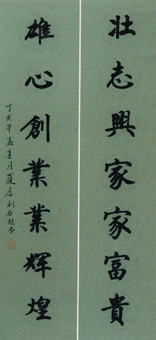 壮志興家家富貴
雄心創業業輝煌
丁亥年孟春月